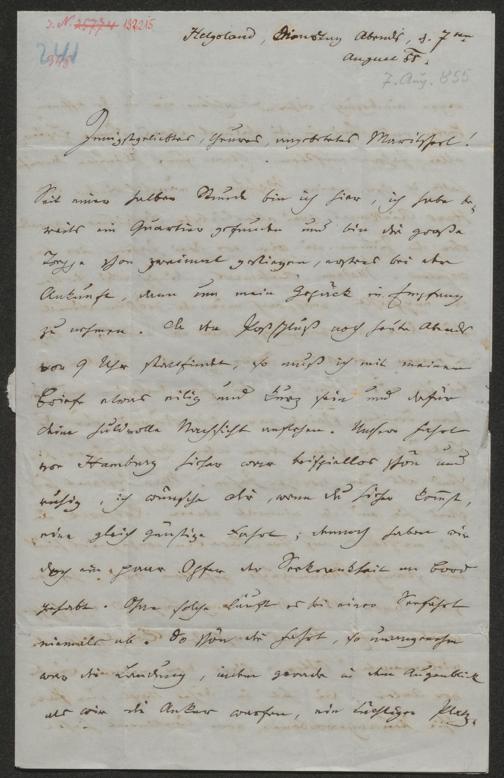 I. N. 25774 132215
241
Helgoland, Dienstag Abends, d. 7ten
August 55.
7. Aug. 855
Innigstgeliebtes, theures, angebetetes Moritzherl!
Seit einer halben Stunde bin ich hier, ich habe be-
reits ein Quartier gefunden und bin die große
Treppe schon zweimal gestiegen, erstens bei der
Ankunft, dann um mein Gepäck in Empfang
zu nehmen. Da der Postschluß noch heute Abends
vor 9 Uhr stattfindet, so muß ich mit meinem
Brief etwas eilig und kurz sein und dafür
deine huldvolle Nachsicht anflehen. Unsere Fahrt
von Hamburg hieher war beispiellos schön und
ruhig, ich wünsche dir, wenn du hieher kommst,
eine gleich günstige Fahrt; dennoch haben wir
doch ein paar Opfer der Seekrankheit an Bord
gehabt. Ohne solche läuft es bei einer Seefahrt
niemals ab. So schön die Fahrt, so unangenehm
war die Landung, indem gerade in dem Augenblick
als wir die Anker warfen, ein tüchtiger Platz-